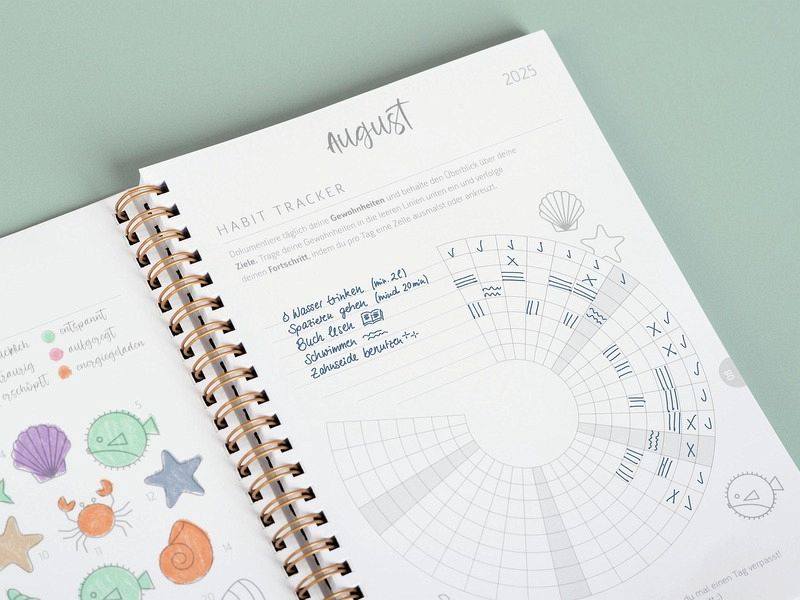 2025
August
HABIT TRACKER
Dokumentiere täglich deine Gewohnheiten und behalte den Überblick über deine
Ziele. Trage deine Gewohnheiten in die leeren Linien unten ein und verfolge
deinen Fortschritt, indem du pro Tag eine Zeile ausmalst oder ankreuzt.
Wasser trinken (min. 2l)
Spazieren gehen (mind. 20min)
Buch lesen
Schwimmen
Zahnseide benutzen
entspannt
aufgeregt
energiegeladen
5
12
10
11
14
du mal einen Tag verpasst!